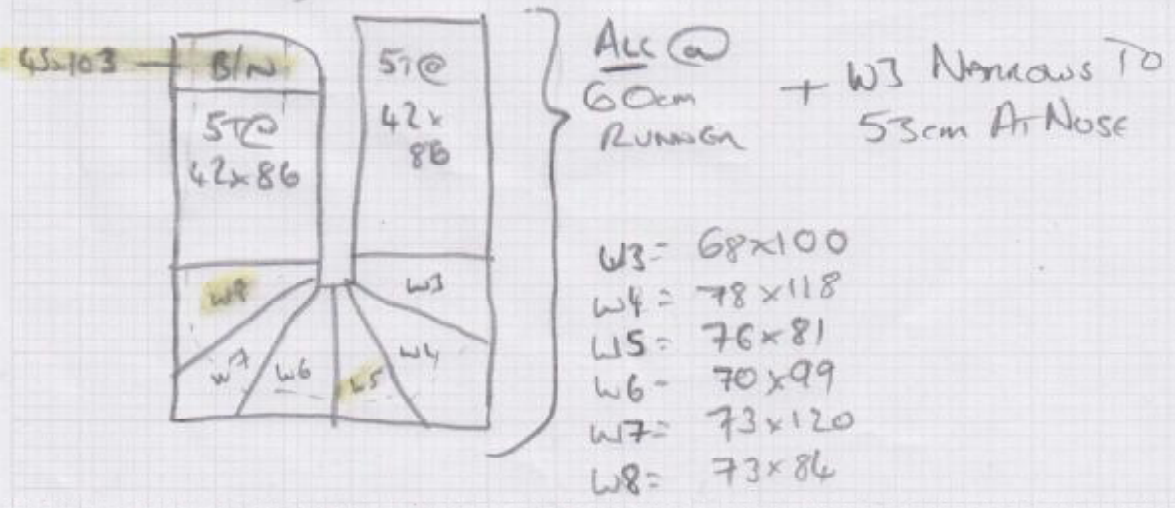 45x103 — B/N
5T@
42x86
5T@
42x
86
W8
W7
W6
W5
W4
W3
ALL @
60cm
RUNNER
+ W3 NARROWS TO
53cm AT NOSE
W3= 68x100
W4= 78x118
W5= 76x81
W6= 70x99
W7= 73x120
W8= 73x84